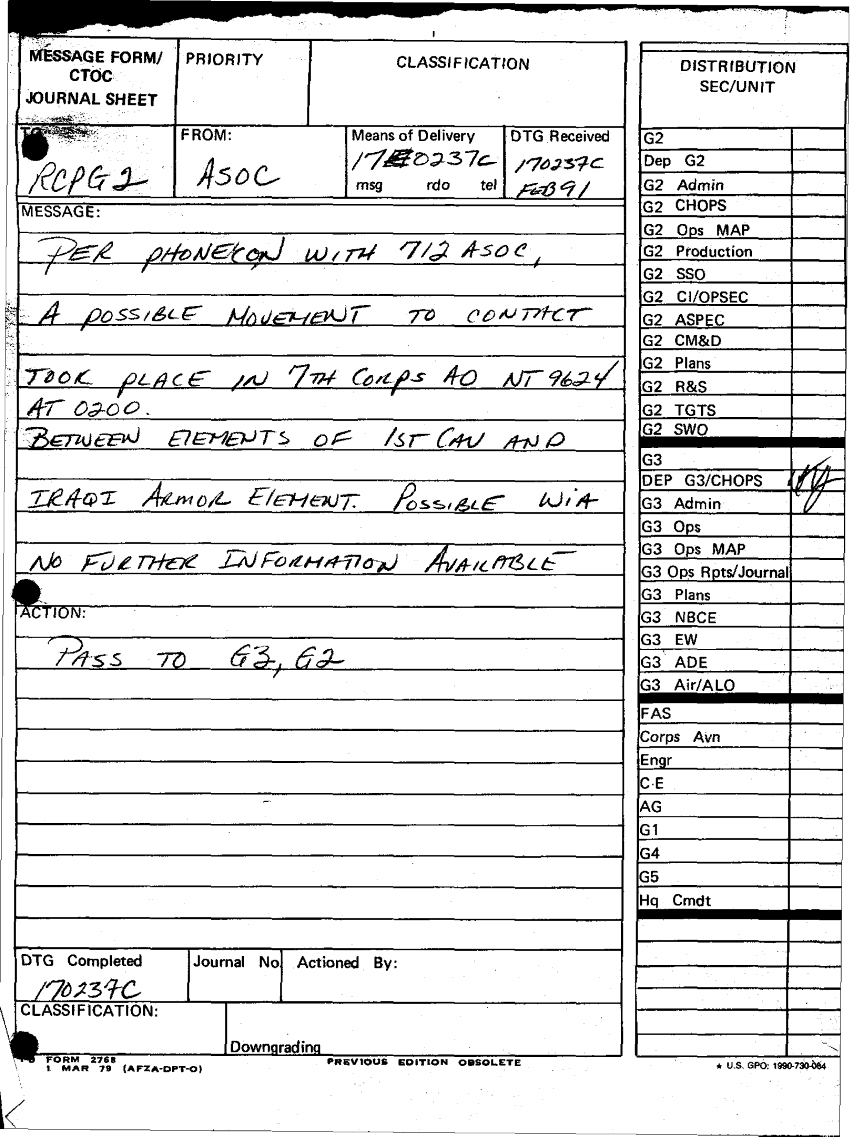 MESSAGE FORM/
CTOC
JOURNAL SHEET
PRIORITY
CLASSIFICATION
TO:
RCPG2
FROM:
ASOC
Means of Delivery
170237C
msg rdo tel
DTG Received
170237C
FEB 91
MESSAGE:
PER PHONECON WITH 712 ASOC,
A POSSIBLE MOVEMENT TO CONTACT
TOOK PLACE IN 7TH CORPS AO NT 9624
AT 0200.
BETWEEN ELEMENTS OF 1ST CAV AND
IRAQI ARMOR ELEMENT. POSSIBLE WIA
NO FURTHER INFORMATION AVAILABLE
ACTION:
PASS TO G3, G2
DTG Completed
170237C
Journal No
Actioned By:
CLASSIFICATION:
Downgrading
FORM 2768
1 MAR 79 (AFZA-DPT-O)
PREVIOUS EDITION OBSOLETE
DISTRIBUTION
SEC/UNIT
G2
Dep G2
G2 Admin
G2 CHOPS
G2 Ops MAP
G2 Production
G2 SSO
G2 CI/OPSEC
G2 ASPEC
G2 CM&D
G2 Plans
G2 R&S
G2 TGTS
G2 SWO
G3
DEP G3/CHOPS
G3 Admin
G3 Ops
G3 Ops MAP
G3 Ops Rpts/Journal
G3 Plans
G3 NBCE
G3 EW
G3 ADE
G3 Air/ALO
FAS
Corps Avn
Engr
C-E
AG
G1
G4
G5
Hq Cmdt
★ U.S. GPO: 1990-730-064